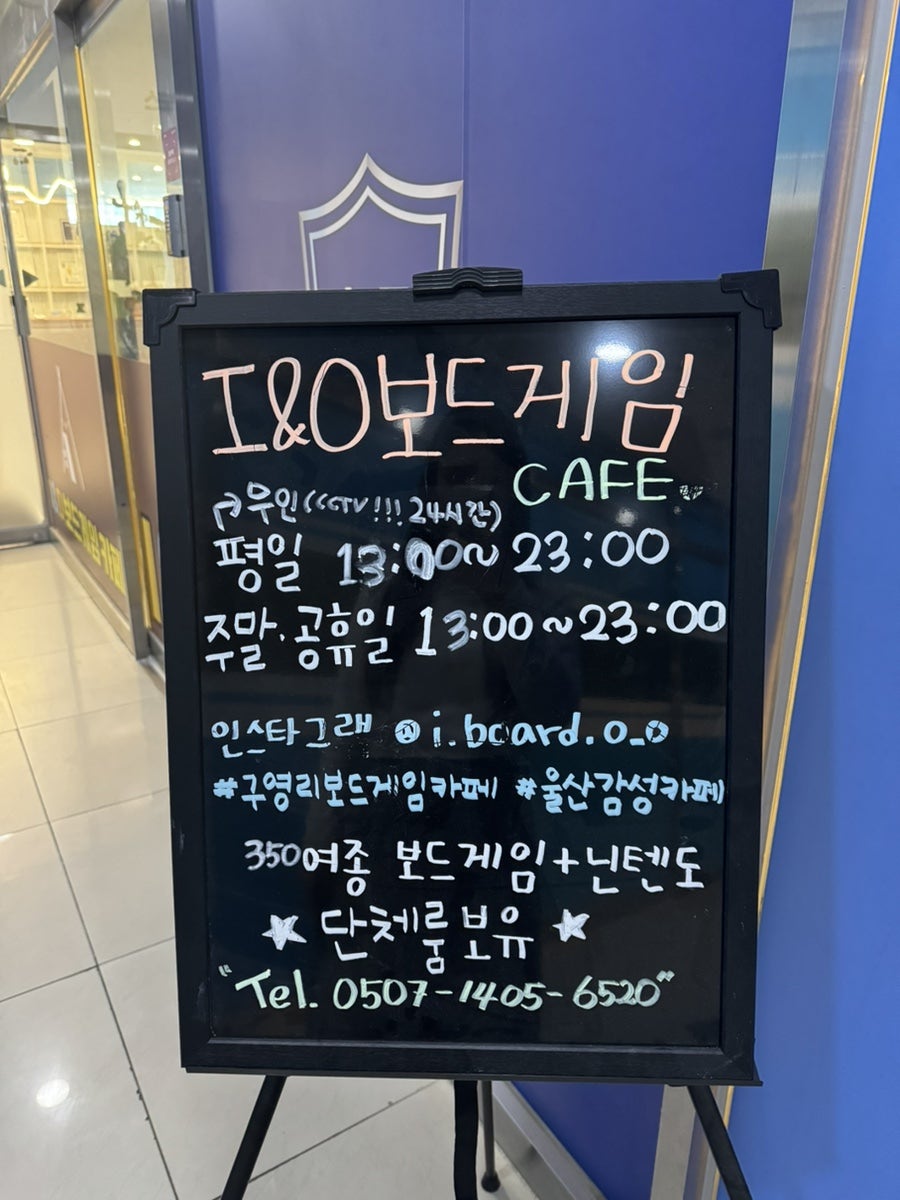 I&O보드게임
CAFE
무인(CCTV!!! 24시간)
평일 13:00~23:00
주말.공휴일 13:00~23:00
인스타그램 @i.board.o_o
#구영리보드게임카페 #울산감성카페
350여종 보드게임+닌텐도
★단체룸보유★
"Tel. 0507-1405-6520"